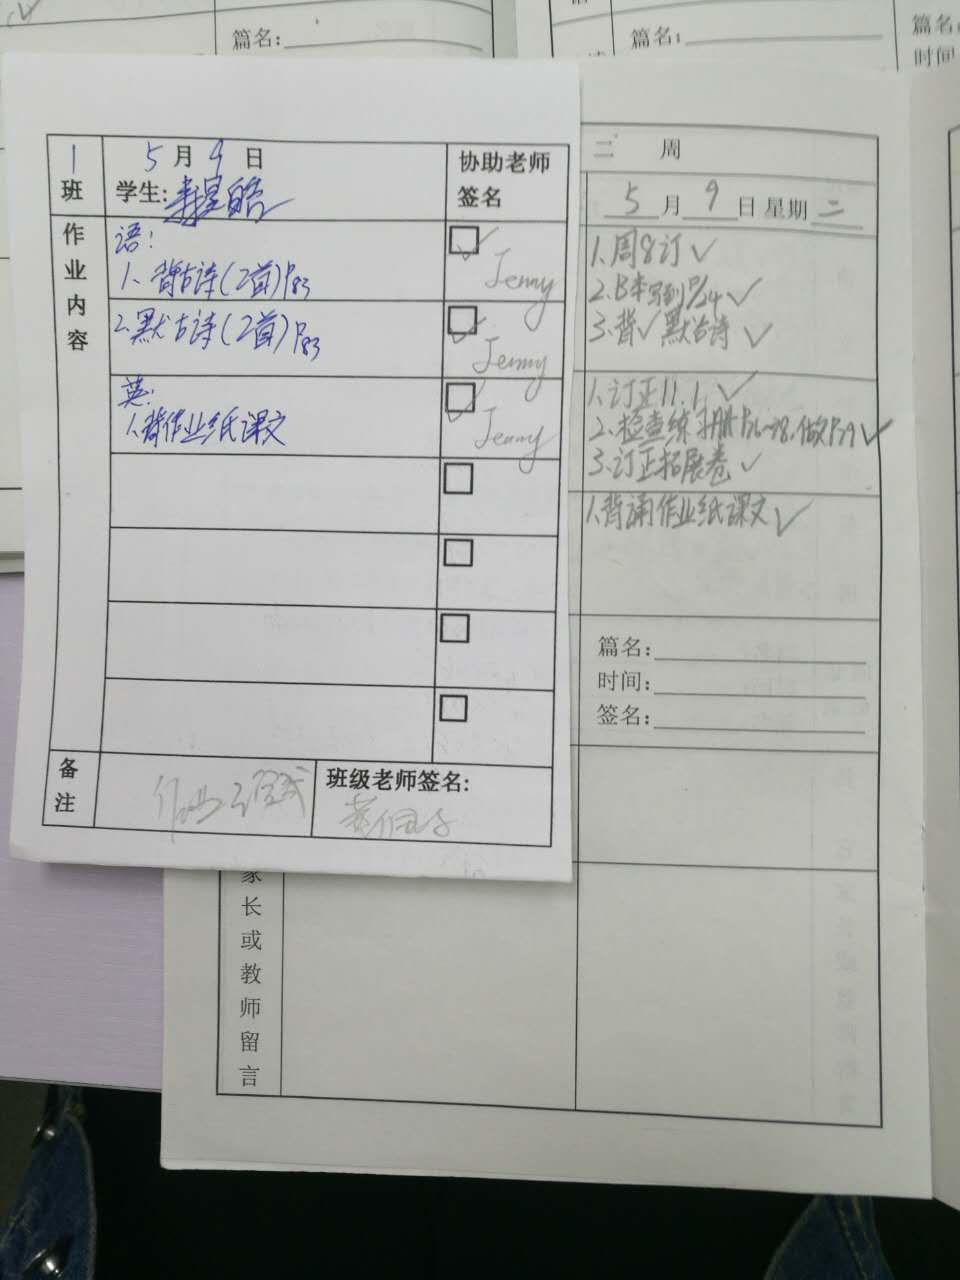 篇名:
篇名:
篇名
时间
1
班
5月9日
学生:
协助老师
签名
作业内容
语:
1、背古诗(2首)P83
Jenny
2.默古诗(2首)P83
Jenny
英:
1.背作业纸课文
Jenny
备注
班级老师签名:
二 周
5月9日 星期二
1.周8订✓
2.B本写到P24✓
3.背✓默古诗✓
1.订正11.1✓
2.检查练习册P26~28.做P29✓
3.订正拓展卷✓
1.背诵作业纸课文✓
篇名:
时间:
签名:
家长或教师留言